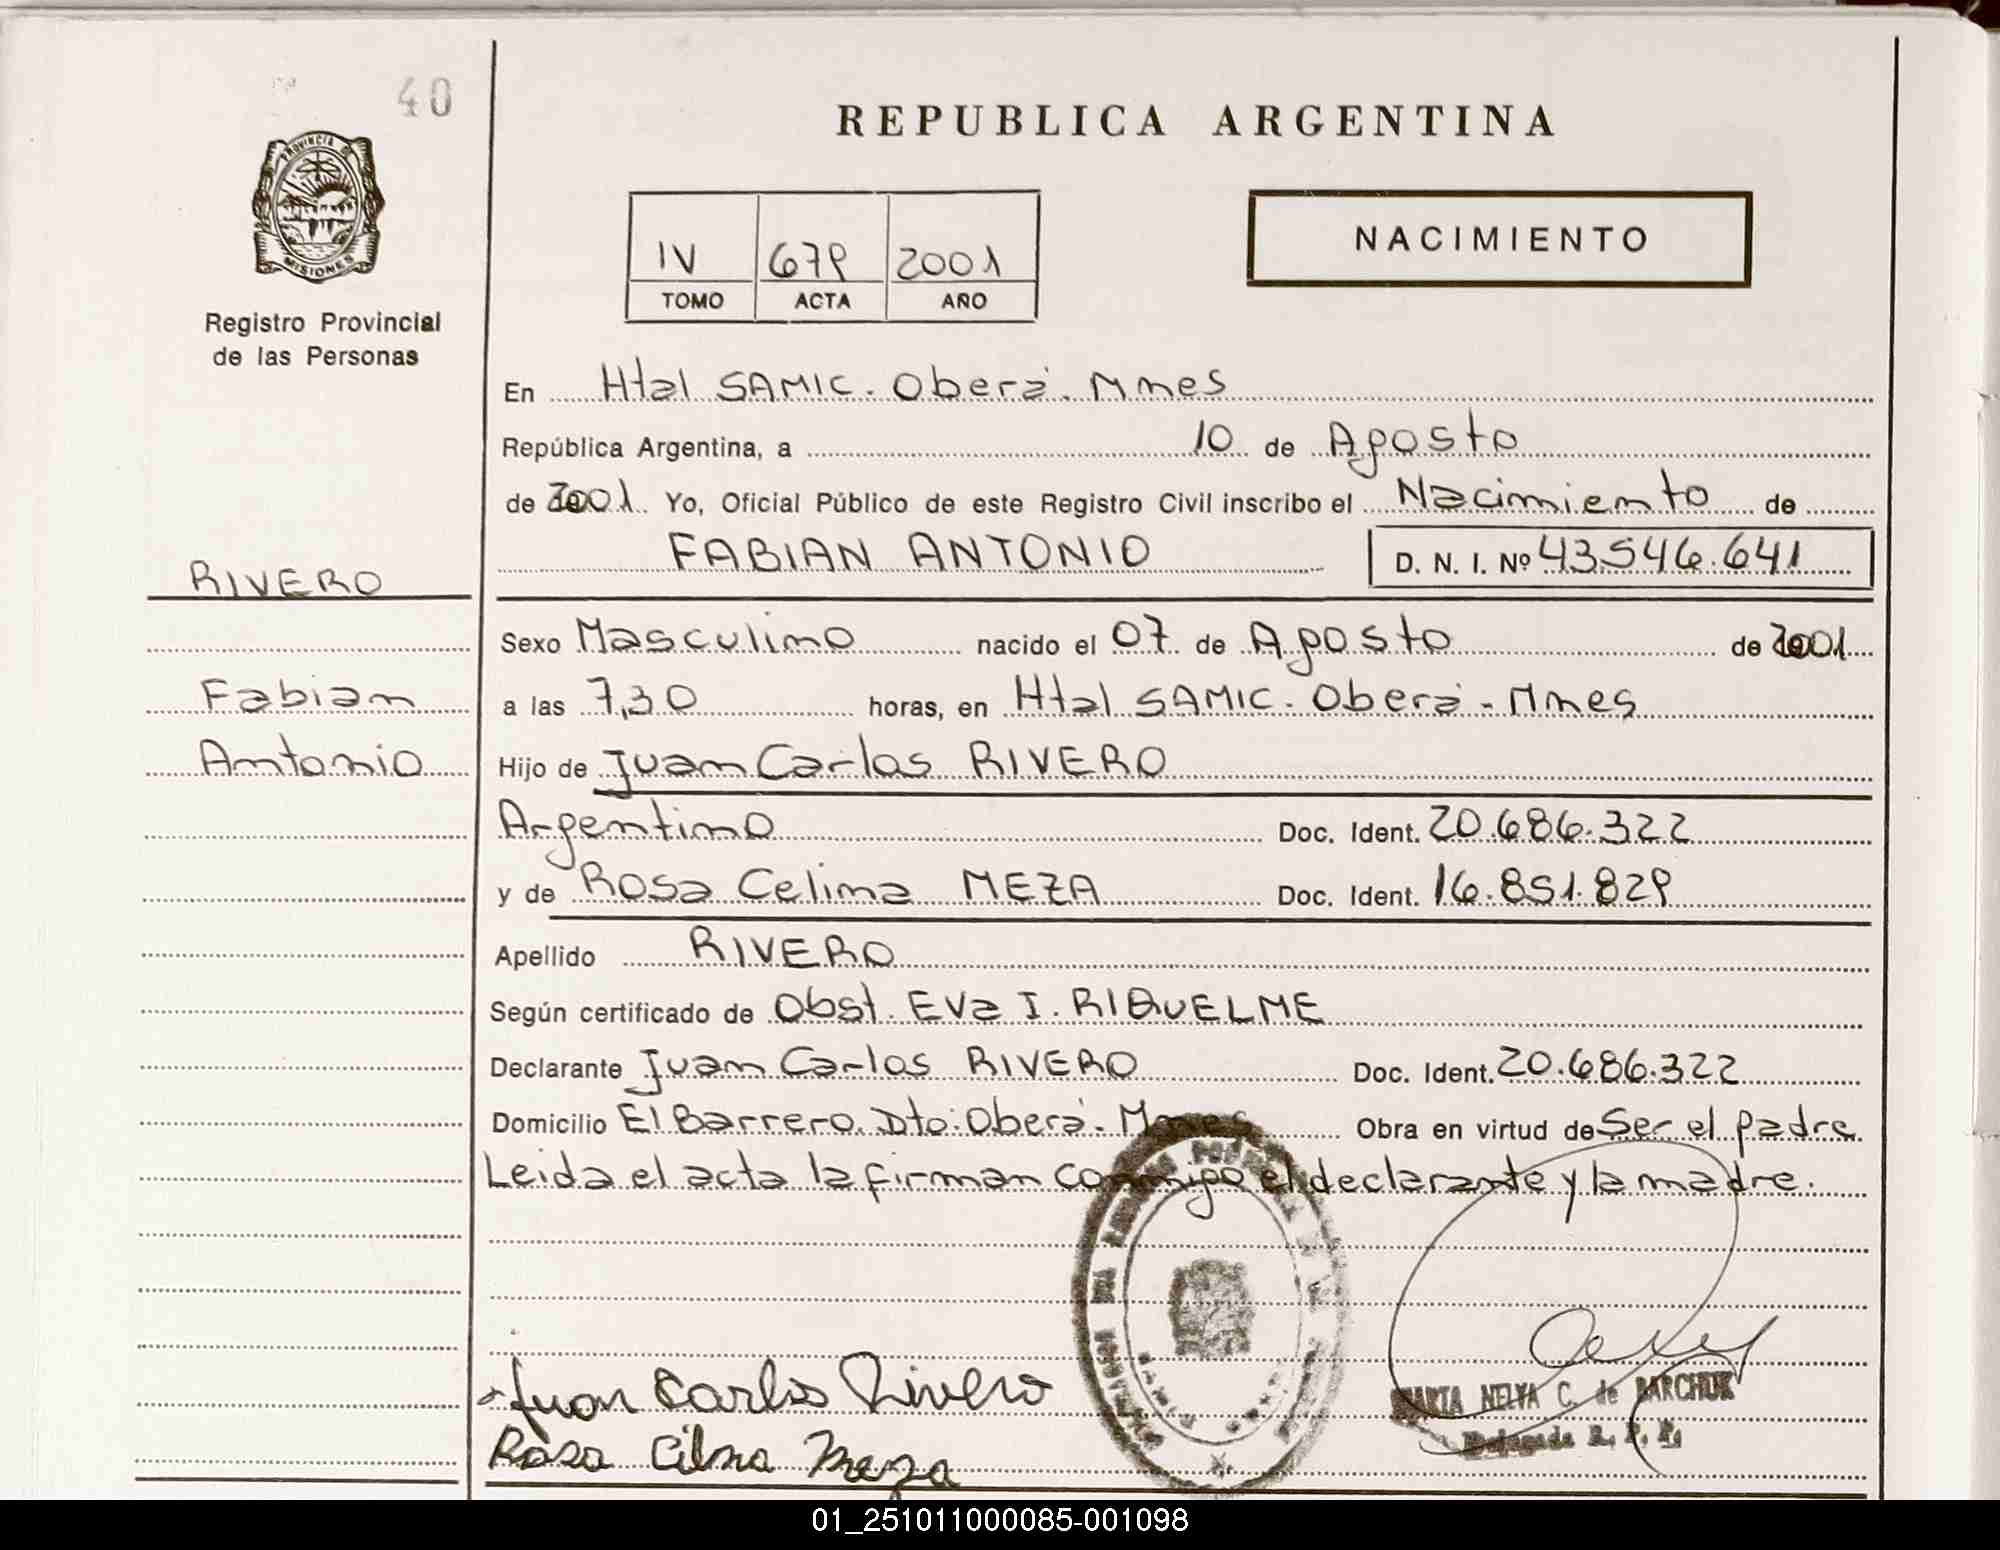 40
PROVINCIA DE
MISIONES
Registro Provincial
de las Personas
REPUBLICA ARGENTINA
IV 679 2001
TOMO ACTA AÑO
NACIMIENTO
En Htal SAMIC. Oberá. Mnes
República Argentina, a 10 de Agosto
de 2001. Yo, Oficial Público de este Registro Civil inscribo el Nacimiento de
FABIAN ANTONIO D. N. I. Nº 43.546.641
RIVERO
Sexo Masculino nacido el 07 de Agosto de 2001
Fabian
a las 7,30 horas, en Htal SAMIC. Oberá - Mnes
Antonio
Hijo de Juan Carlos RIVERO
Argentino Doc. Ident. 20.686.322
y de Rosa Celina MEZA Doc. Ident. 16.851.829
Apellido RIVERO
Según certificado de Obst. Eva I. RIQUELME
Declarante Juan Carlos RIVERO Doc. Ident. 20.686.322
Domicilio El Barrero. Dto. Oberá - Mnes Obra en virtud de Ser el padre.
Leida el acta la firman conmigo el declarante y la madre.
Juan Carlos Rivero
MARTA NELVA C. de BARCHUK
Delegada R. P. P.
Rosa Cilna Meza
01_251011000085-001098